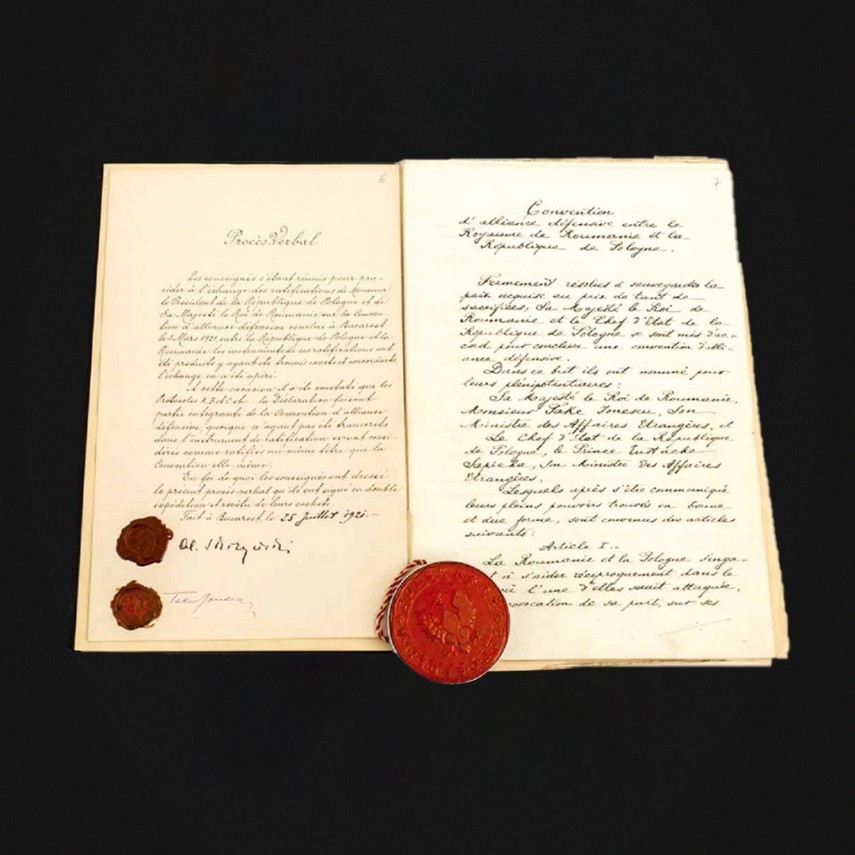 6
Procès Verbal
Les soussignés s'étant réunis pour pro-
céder à l'échange des ratifications de Monsieur
le Président de la République de Pologne et de
Sa Majesté le Roi de Roumanie sur la Conven-
tion d'alliance défensive conclue à Bucarest
le 3 Mars 1921, entre la République de Pologne et la
Roumanie les instruments de ces ratifications ont
été produits et ayant été trouvés exacts et concordants
l'échange en a été opéré.
A cette occasion il a été constaté que les
Protocoles A, B et C et la Déclaration faisant
partie intégrante de la Convention d'alliance
défensive, quoique n'ayant pas été transcrits
dans l'instrument de ratification seront consi-
dérés comme ratifiés au même titre que la
Convention elle même.
En foi de quoi les soussignés ont dressé
le présent procès-verbal qu'ils ont signé en double
expédition et revêtu de leurs cachets.
Fait à Bucarest, le 25 Juillet 1921.-
Al. Skrzyński
Take Ionescu
7
Convention
d'alliance défensive entre le
Royaume de Roumanie et la
République de Pologne.
Fermement résolus à sauvegarder la
paix acquise au prix de tant de
sacrifices, Sa Majesté le Roi de
Roumanie et le Chef d'Etat de la
République de Pologne se sont mis d'ac-
cord pour conclure une convention d'alli-
ance défensive.
Dans ce but ils ont nommé pour
leurs plénipotentiaires:
Sa Majesté le Roi de Roumanie,
Monsieur Take Ionescu, Son
Ministre des Affaires Etrangères, et
Le Chef d'Etat de la République
de Pologne, le Prince Eustache
Sapieha, Son Ministre des Affaires
Etrangères.
Lesquels après s'être communiqué
leurs pleins pouvoirs trouvés en bonne
et due forme, sont convenus des articles
suivants:
Article I.-
La Roumanie et la Pologne s'enga-
t à s'aider réciproquement dans le
l'une d'elles serait attaquée,
rovocation de sa part, sur ses